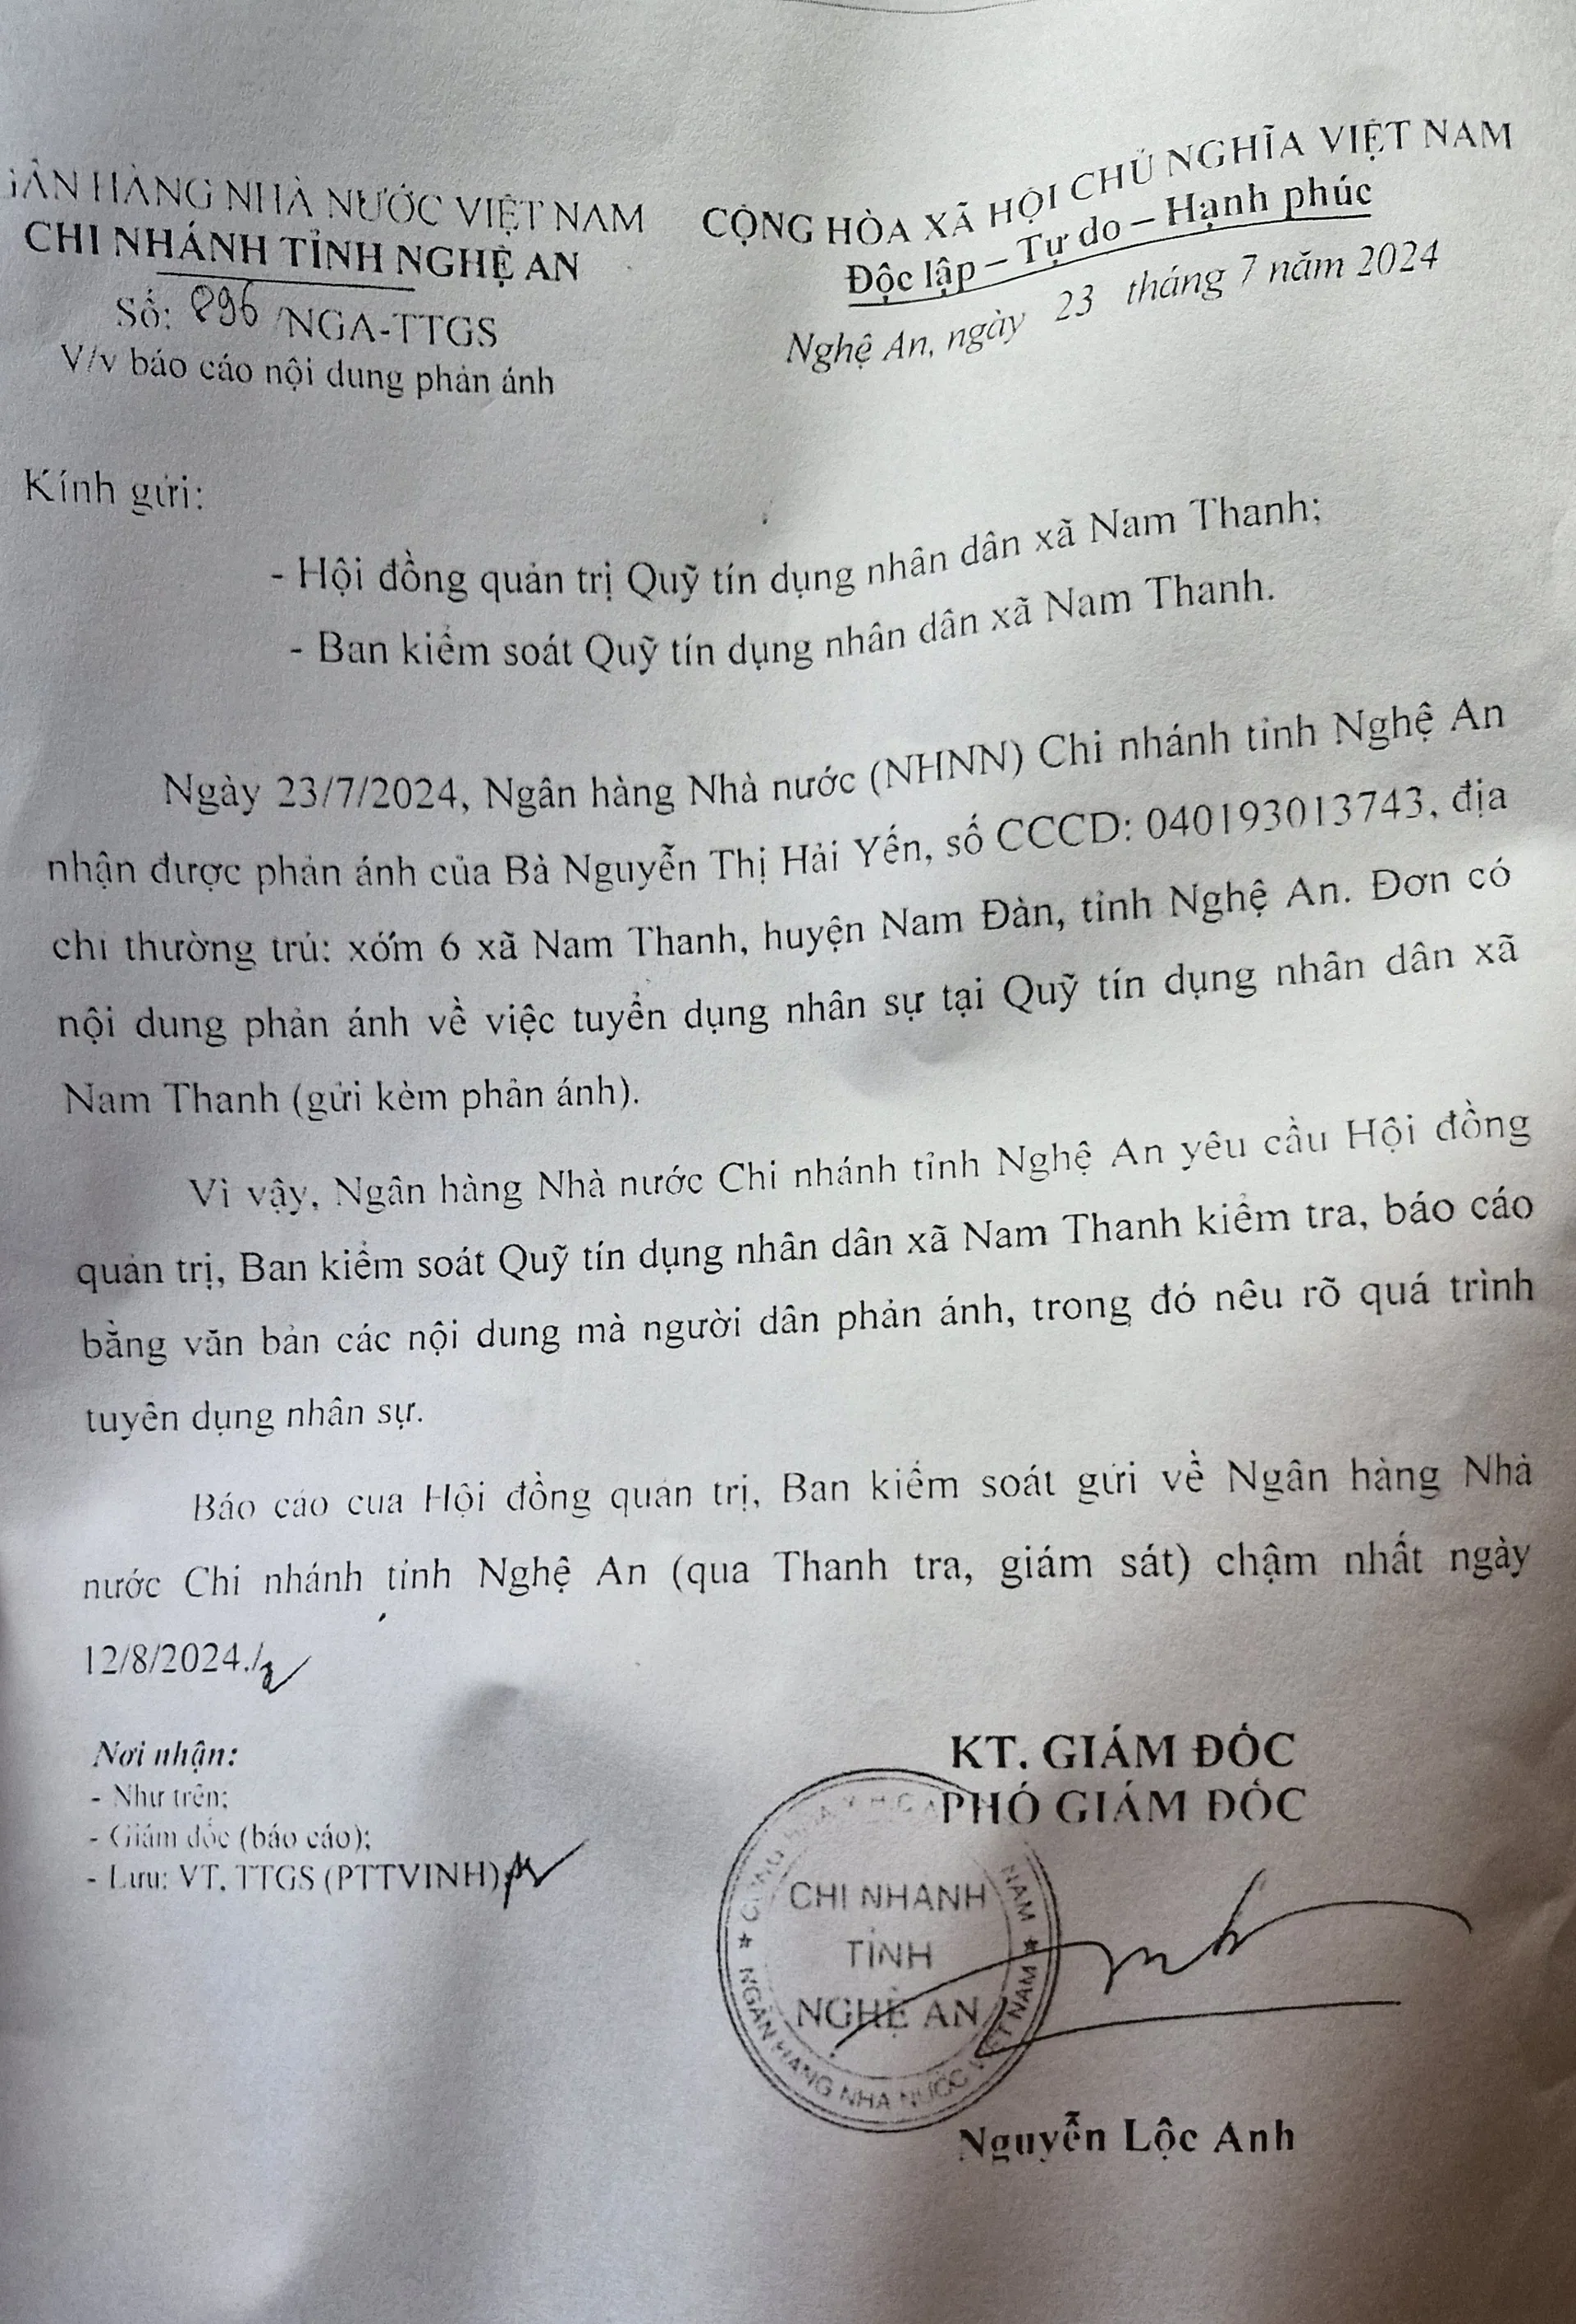 NGÂN HÀNG NHÀ NƯỚC VIỆT NAM
CHI NHÁNH TỈNH NGHỆ AN
Số: 896 /NGA-TTGS
V/v báo cáo nội dung phản ánh
CỘNG HÒA XÃ HỘI CHỦ NGHĨA VIỆT NAM
Độc lập – Tự do – Hạnh phúc
Nghệ An, ngày 23 tháng 7 năm 2024
Kính gửi:
- Hội đồng quản trị Quỹ tín dụng nhân dân xã Nam Thanh;
- Ban kiểm soát Quỹ tín dụng nhân dân xã Nam Thanh.
Ngày 23/7/2024, Ngân hàng Nhà nước (NHNN) Chi nhánh tỉnh Nghệ An
nhận được phản ánh của Bà Nguyễn Thị Hải Yến, số CCCD: 040193013743, địa
chỉ thường trú: xóm 6 xã Nam Thanh, huyện Nam Đàn, tỉnh Nghệ An. Đơn có
nội dung phản ánh về việc tuyển dụng nhân sự tại Quỹ tín dụng nhân dân xã
Nam Thanh (gửi kèm phản ánh).
Vì vậy, Ngân hàng Nhà nước Chi nhánh tỉnh Nghệ An yêu cầu Hội đồng
quản trị, Ban kiểm soát Quỹ tín dụng nhân dân xã Nam Thanh kiểm tra, báo cáo
bằng văn bản các nội dung mà người dân phản ánh, trong đó nêu rõ quá trình
tuyển dụng nhân sự.
Báo cáo của Hội đồng quản trị, Ban kiểm soát gửi về Ngân hàng Nhà
nước Chi nhánh tỉnh Nghệ An (qua Thanh tra, giám sát) chậm nhất ngày
12/8/2024./
Nơi nhận:
- Như trên;
- Giám đốc (báo cáo);
- Lưu: VT, TTGS (PTTVINH)
KT. GIÁM ĐỐC
PHÓ GIÁM ĐỐC
CHI NHÁNH
TỈNH
NGHỆ AN
NGÂN HÀNG NHÀ NƯỚC VIỆT NAM
Nguyễn Lộc Anh